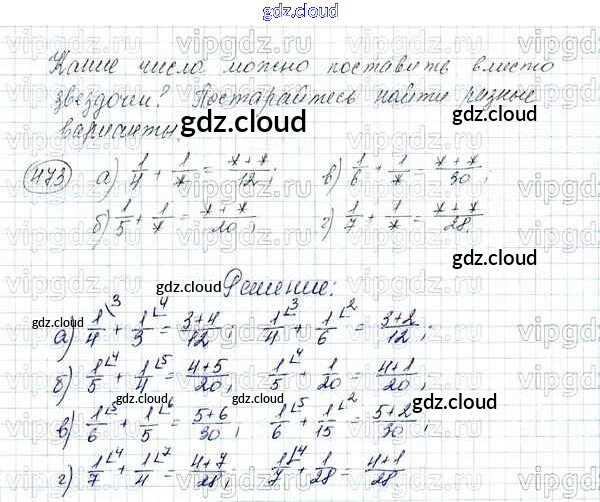 gdz.cloud
Какие числа можно поставить вместо
звездочки? Постарайтесь найти разные
варианты.
gdz.cloud
473 а) 1/4 + 1/* = *+*/12; в) 1/6 + 1/* = *+*/30;
б) 1/5 + 1/* = *+*/20; г) 1/7 + 1/* = *+*/28.
gdz.cloud
gdz.cloud
Решение:
gdz.cloud
gdz.cloud
а) 1/4 + 1/3 = 3+4/12; 1/4 + 1/6 = 3+2/12;
б) 1/5 + 1/4 = 4+5/20; 1/5 + 1/20 = 4+1/20;
gdz.cloud
gdz.cloud
в) 1/6 + 1/5 = 5+6/30; 1/6 + 1/15 = 5+2/30;
г) 1/7 + 1/4 = 4+7/28; 1/7 + 1/28 = 4+1/28.
gdz.cloud